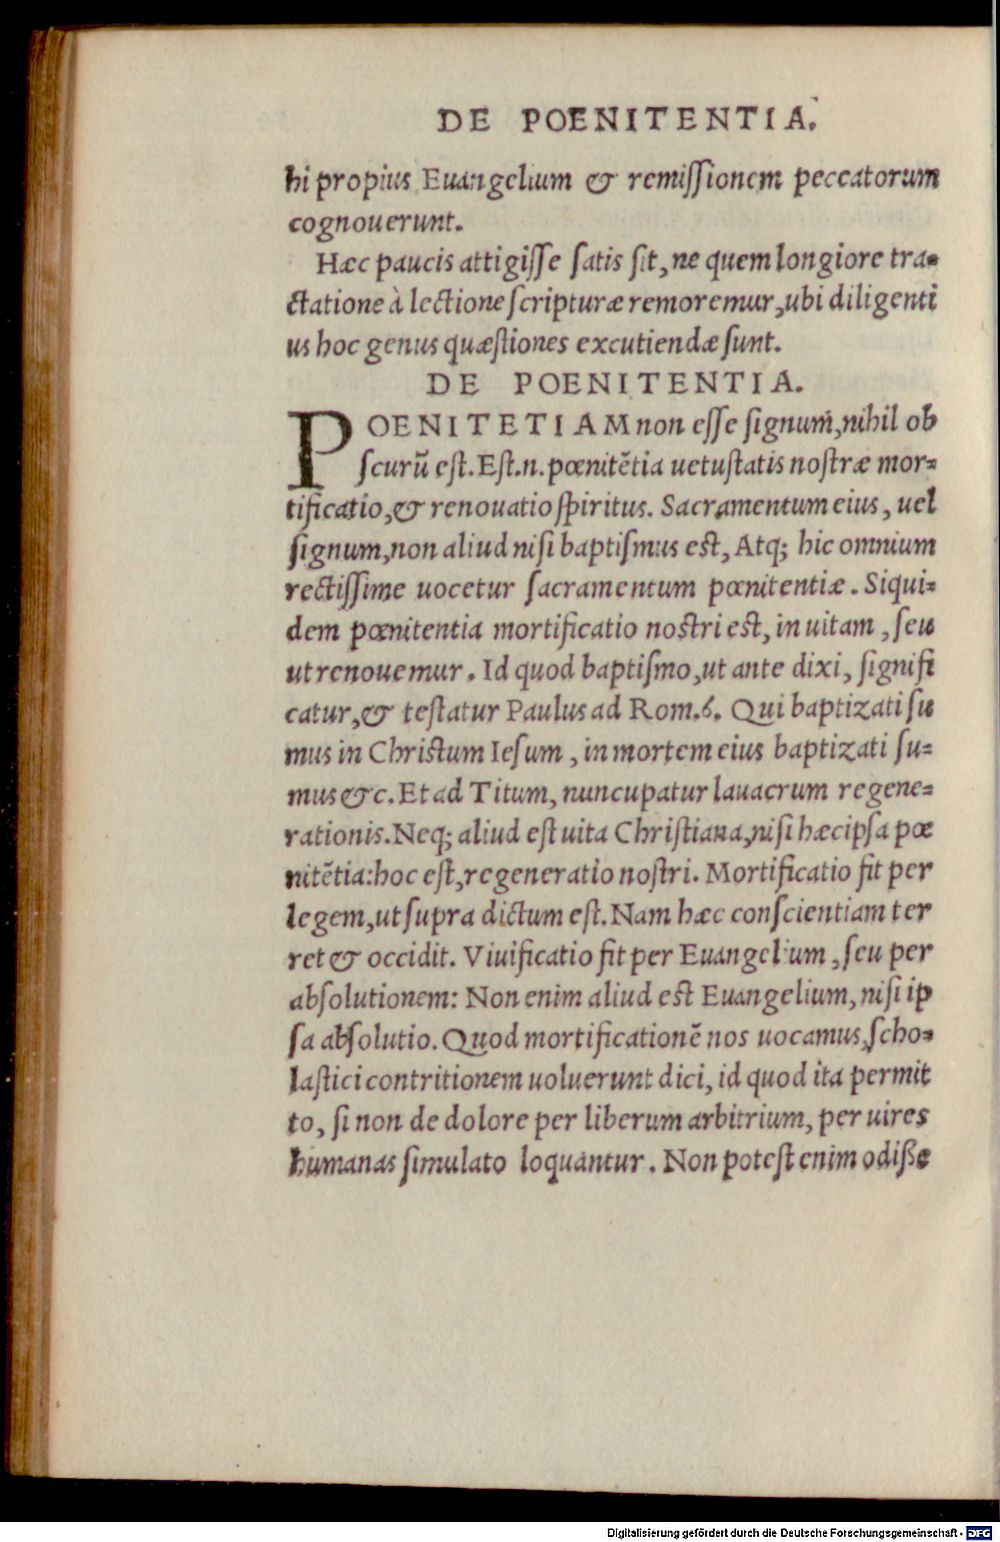 DE POENITENTIA.
hi propius Euangelium & remiſſionem peccatorum
cognouerunt.
Hæc paucis attigiſſe ſatis ſit, ne quem longiore tra-
ctatione à lectione ſcripturæ remoremur, ubi diligenti
us hoc genus quæſtiones excutiendæ ſunt.
DE POENITENTIA.
POENITETIAM non eſſe ſignum, nihil ob
ſcurũ eſt. Eſt.n. pœnitẽtia uetuſtatis noſtræ mor-
tificatio, & renouatio ſpiritus. Sacramentum eius, uel
ſignum, non aliud niſi baptiſmus eſt, Atq; hic omnium
rectiſſime uocetur ſacramentum pœnitentiæ. Siqui-
dem pœnitentia mortificatio noſtri eſt, in uitam, ſeu
ut renouemur. Id quod baptiſmo, ut ante dixi, ſignifi
catur, & teſtatur Paulus ad Rom.6. Qui baptizati ſu
mus in Chriſtum Ieſum, in mortem eius baptizati ſu-
mus &c. Et ad Titum, nuncupatur lauacrum regene-
rationis. Neq; aliud eſt uita Chriſtiana, niſi hæc ipſa pœ
nitẽtia: hoc eſt, regeneratio noſtri. Mortificatio fit per
legem, ut ſupra dictum eſt. Nam hæc conſcientiam ter
ret & occidit. Viuificatio fit per Euangelium, ſeu per
abſolutionem: Non enim aliud eſt Euangelium, niſi ip
ſa abſolutio. Quod mortificationẽ nos uocamus, ſcho-
laſtici contritionem uoluerunt dici, id quod ita permit
to, ſi non de dolore per liberum arbitrium, per uires
humanas ſimulato loquantur. Non poteſt enim odiße
Digitalisierung gefördert durch die Deutsche Forschungsgemeinschaft - DFG